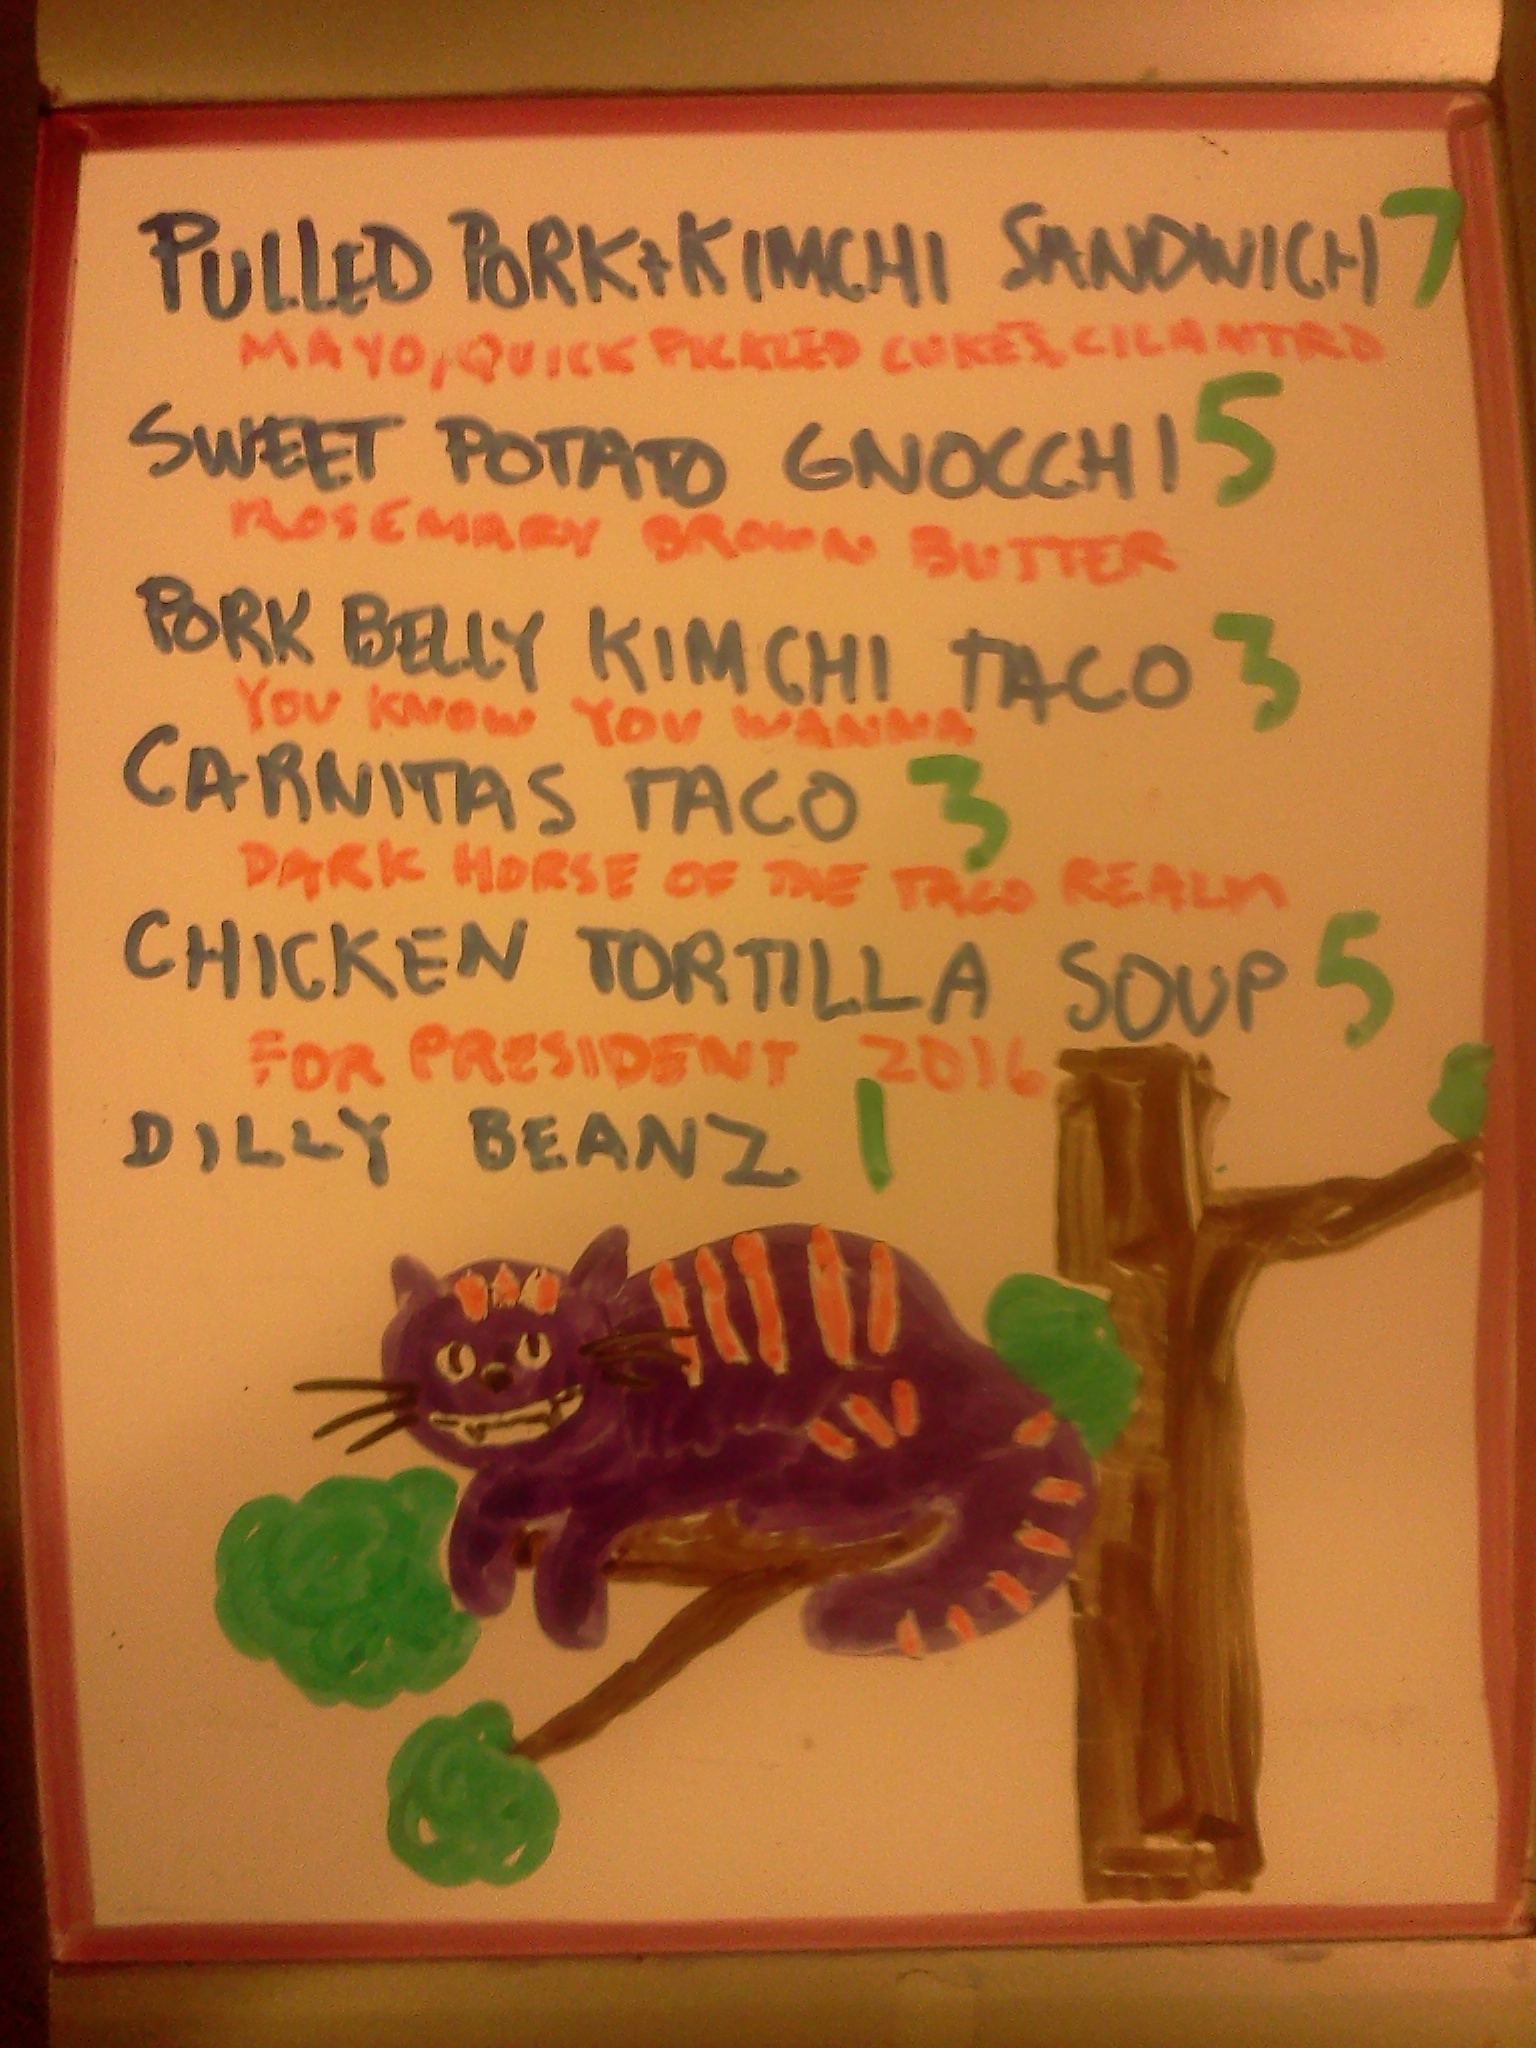 PULLED PORK+KIMCHI SANDWICH 7
MAYO, QUICK PICKLED CUKES, CILANTRO
SWEET POTATO GNOCCHI 5
ROSEMARY BROWN BUTTER
PORK BELLY KIMCHI TACO 3
YOU KNOW YOU WANNA
CARNITAS TACO 3
DARK HORSE OF THE TACO REALM
CHICKEN TORTILLA SOUP 5
FOR PRESIDENT 2016
DILLY BEANZ 1